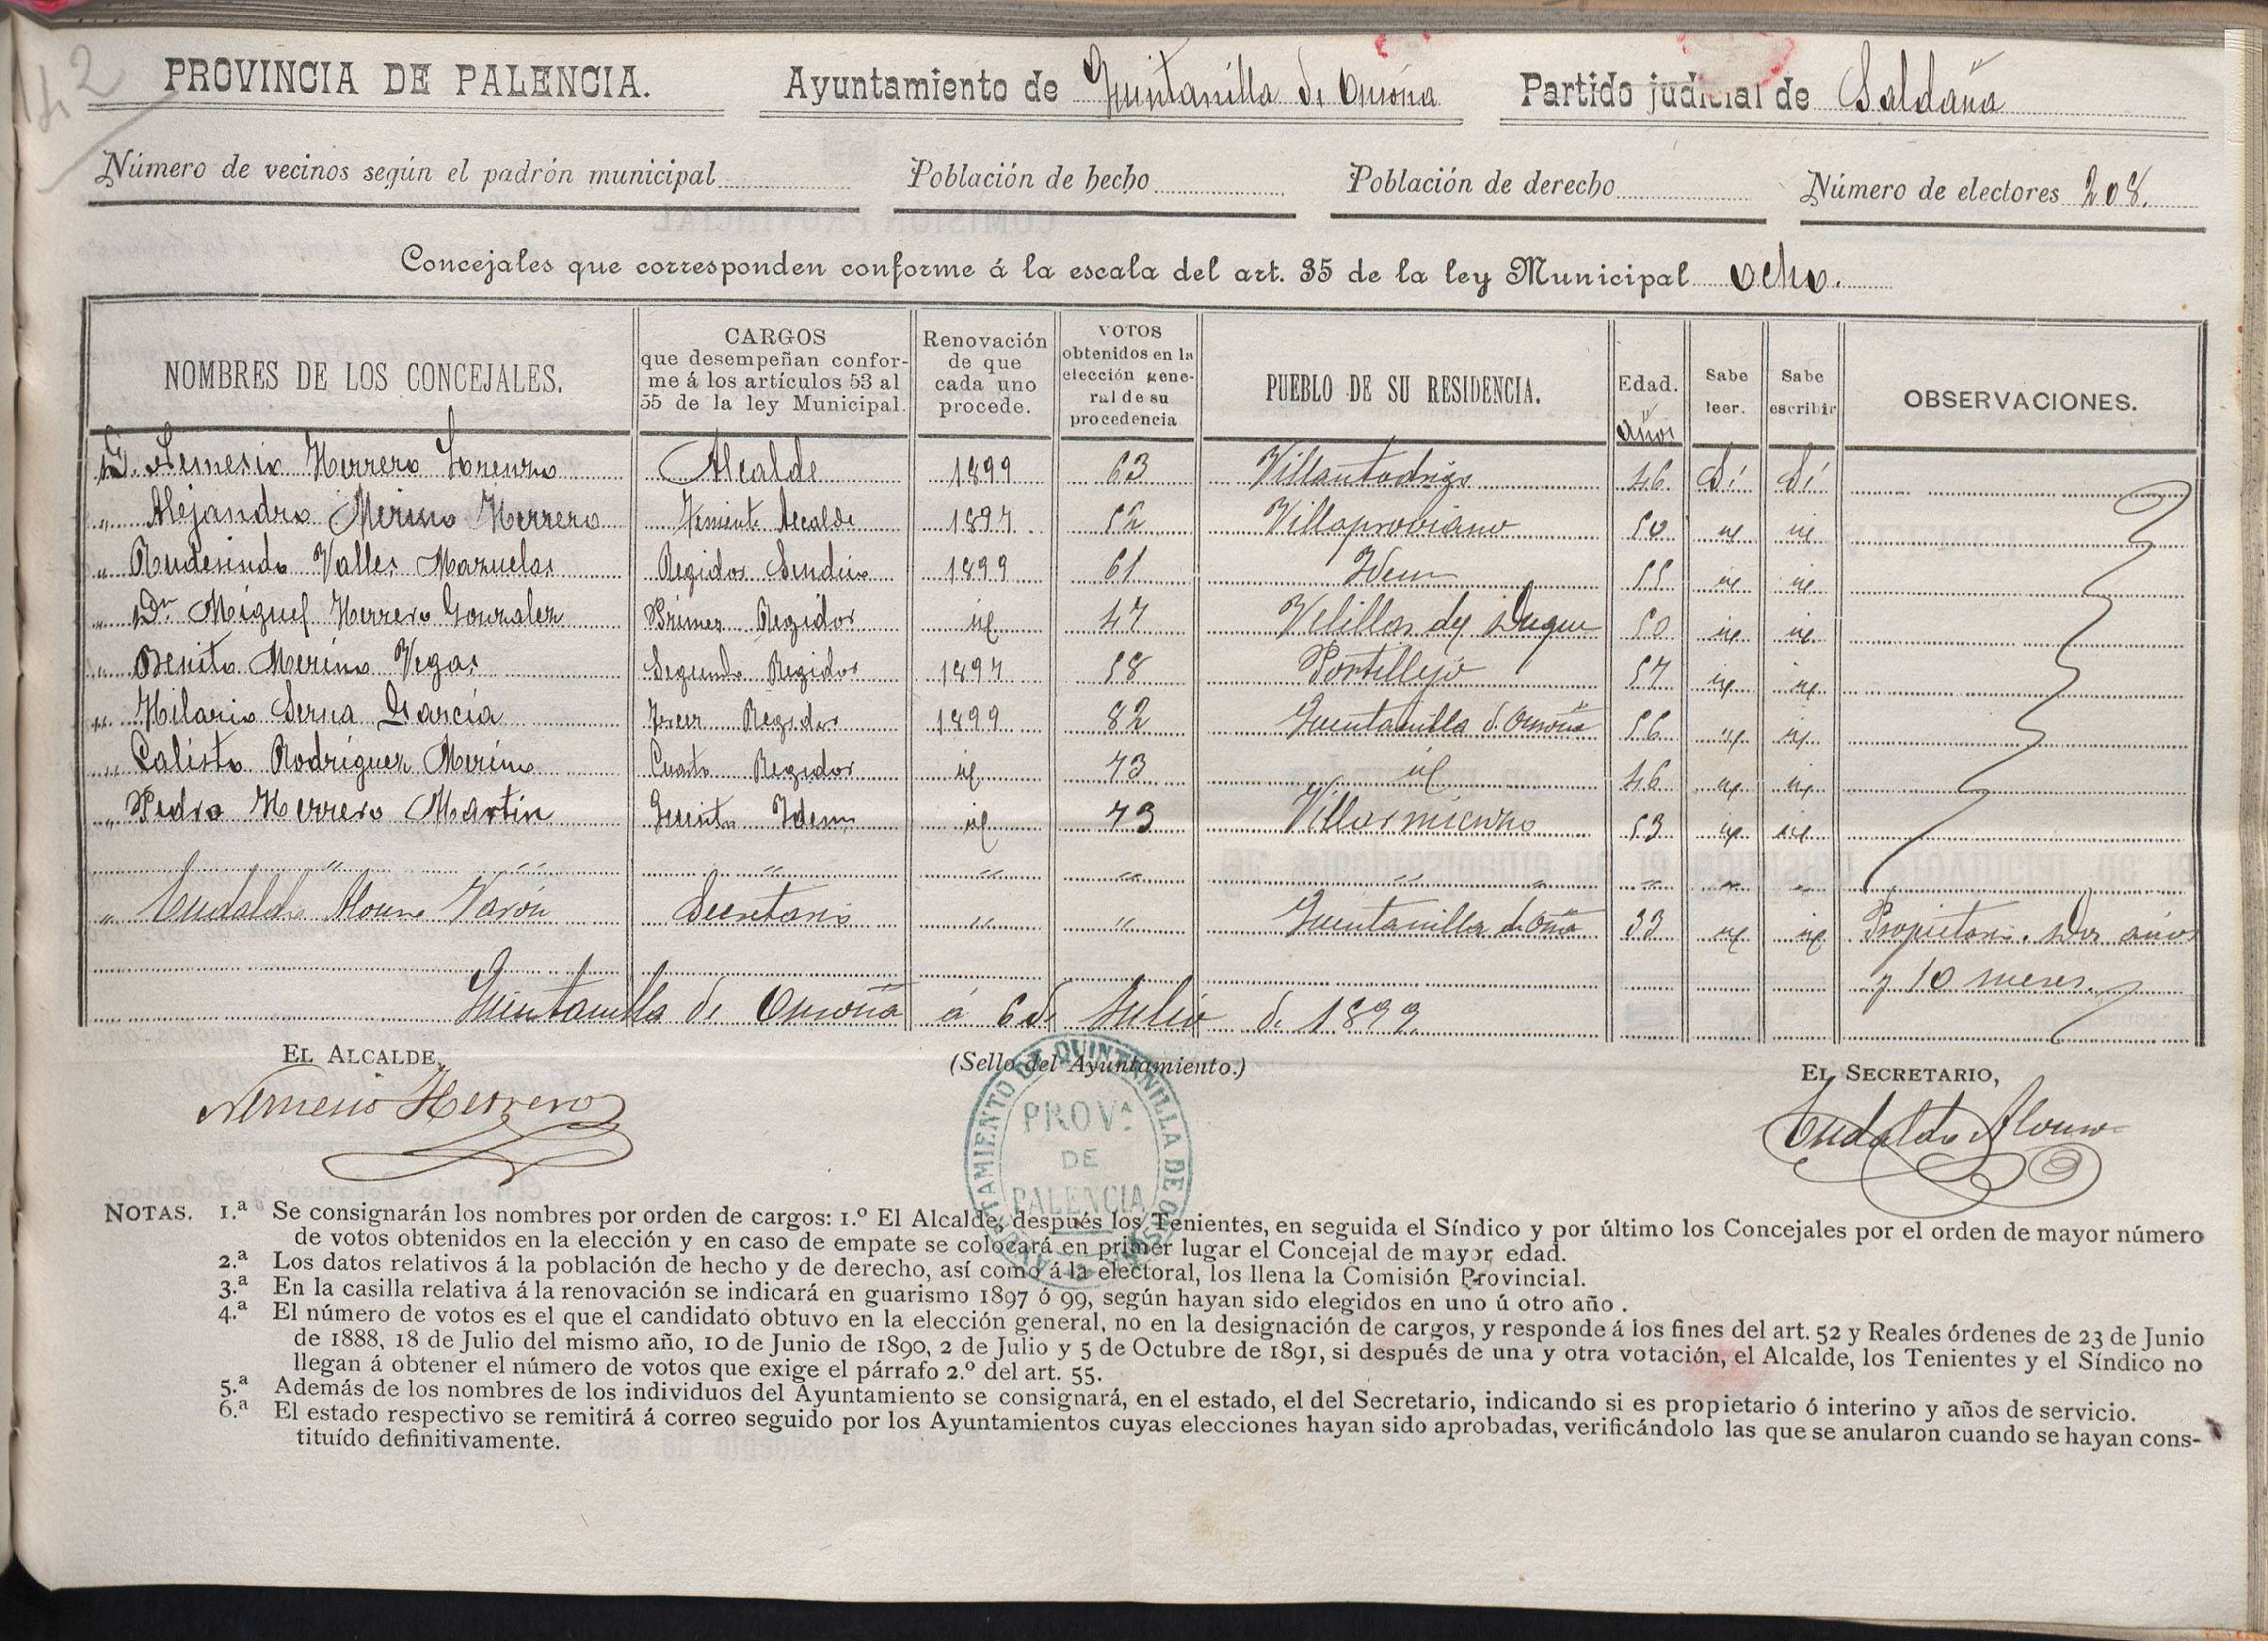 142
PROVINCIA DE PALENCIA. Ayuntamiento de Quintanilla de Onsoña Partido judicial de Saldaña
Número de vecinos según el padrón municipal Población de hecho Población de derecho Número de electores 208.
Concejales que corresponden conforme á la escala del art. 35 de la ley Municipal ocho.
NOMBRES DE LOS CONCEJALES. CARGOS que desempeñan conforme á los artículos 53 al 55 de la ley Municipal. Renovación de que cada uno procede. VOTOS obtenidos en la elección general de su procedencia PUEBLO DE SU RESIDENCIA. Edad. Años Sabe leer. Sabe escribir OBSERVACIONES.
D. Nemesio Herrero Lorenzo Alcalde 1899 63 Villantodrigo 46 Sí Sí
" Alejandro Merino Herrero Teniente Alcalde 1897 52 Villaproviano 50 id id
" Rudesindo Valles Mazuelas Regidor Sindico 1899 61 Idem 55 id id
" Dn Miguel Herrero Gonzalez Primer Regidor id 47 Velillas del Duque 50 id id
" Benito Merino Vegas Segundo Regidor 1897 58 Portillejo 57 id id
" Hilario Serna García Tercer Regidor 1899 82 Quintanilla de Onsoña 56 id id
" Calisto Rodríguez Merino Cuarto Regidor id 73 id 46 id id
" Pedro Herrero Martín Quinto Idem id 73 Villarmienzo 53 id id
" " " " " " " " " "
" Eudaldo Alonso Varón Secretario " " Quintanilla de Oña 33 id id Propietario. Dos años
y 10 meses.
Quintanilla de Onsoña á 6 de Julio de 1899
EL ALCALDE, (Sello del Ayuntamiento.) EL SECRETARIO,
Nemesio Herrero
Eudaldo Alonso
AYUNTAMIENTO DE QUINTANILLA DE ONSOÑA
PROVA
DE
PALENCIA
NOTAS. 1.ª Se consignarán los nombres por orden de cargos: 1.º El Alcalde, después los Tenientes, en seguida el Síndico y por último los Concejales por el orden de mayor número
de votos obtenidos en la elección y en caso de empate se colocará en primer lugar el Concejal de mayor edad.
2.ª Los datos relativos á la población de hecho y de derecho, así como á la electoral, los llena la Comisión Provincial.
3.ª En la casilla relativa á la renovación se indicará en guarismo 1897 ó 99, según hayan sido elegidos en uno ú otro año.
4.ª El número de votos es el que el candidato obtuvo en la elección general, no en la designación de cargos, y responde á los fines del art. 52 y Reales órdenes de 23 de Junio
de 1888, 18 de Julio del mismo año, 10 de Junio de 1890, 2 de Julio y 5 de Octubre de 1891, si después de una y otra votación, el Alcalde, los Tenientes y el Síndico no
llegan á obtener el número de votos que exige el párrafo 2.º del art. 55.
5.ª Además de los nombres de los individuos del Ayuntamiento se consignará, en el estado, el del Secretario, indicando si es propietario ó interino y años de servicio.
6.ª El estado respectivo se remitirá á correo seguido por los Ayuntamientos cuyas elecciones hayan sido aprobadas, verificándolo las que se anularon cuando se hayan cons-
tituído definitivamente.